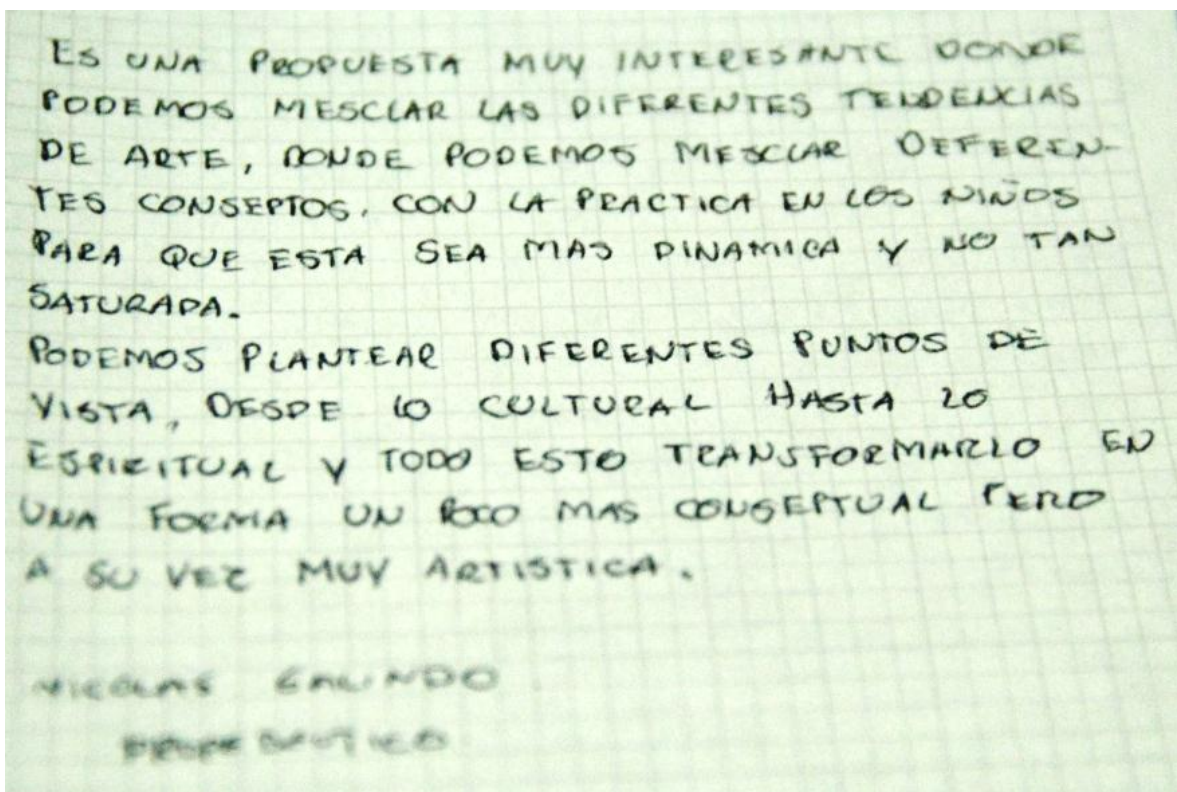 ES UNA PROPUESTA MUY INTERESANTE DONDE
PODEMOS MESCLAR LAS DIFERENTES TENDENCIAS
DE ARTE, DONDE PODEMOS MESCLAR DEFEREN-
TES CONSEPTOS. CON LA PRACTICA EN LOS NIÑOS
PARA QUE ESTA SEA MAS DINAMICA Y NO TAN
SATURADA.
PODEMOS PLANTEAR DIFERENTES PUNTOS DE
VISTA, DESDE LO CULTURAL HASTA LO
ESPIRITUAL Y TODO ESTO TRANSFORMARLO EN
UNA FORMA UN POCO MAS CONSEPTUAL PERO
A SU VEZ MUY ARTISTICA.
NICOLAS GALINDO
PROPEDEUTICO